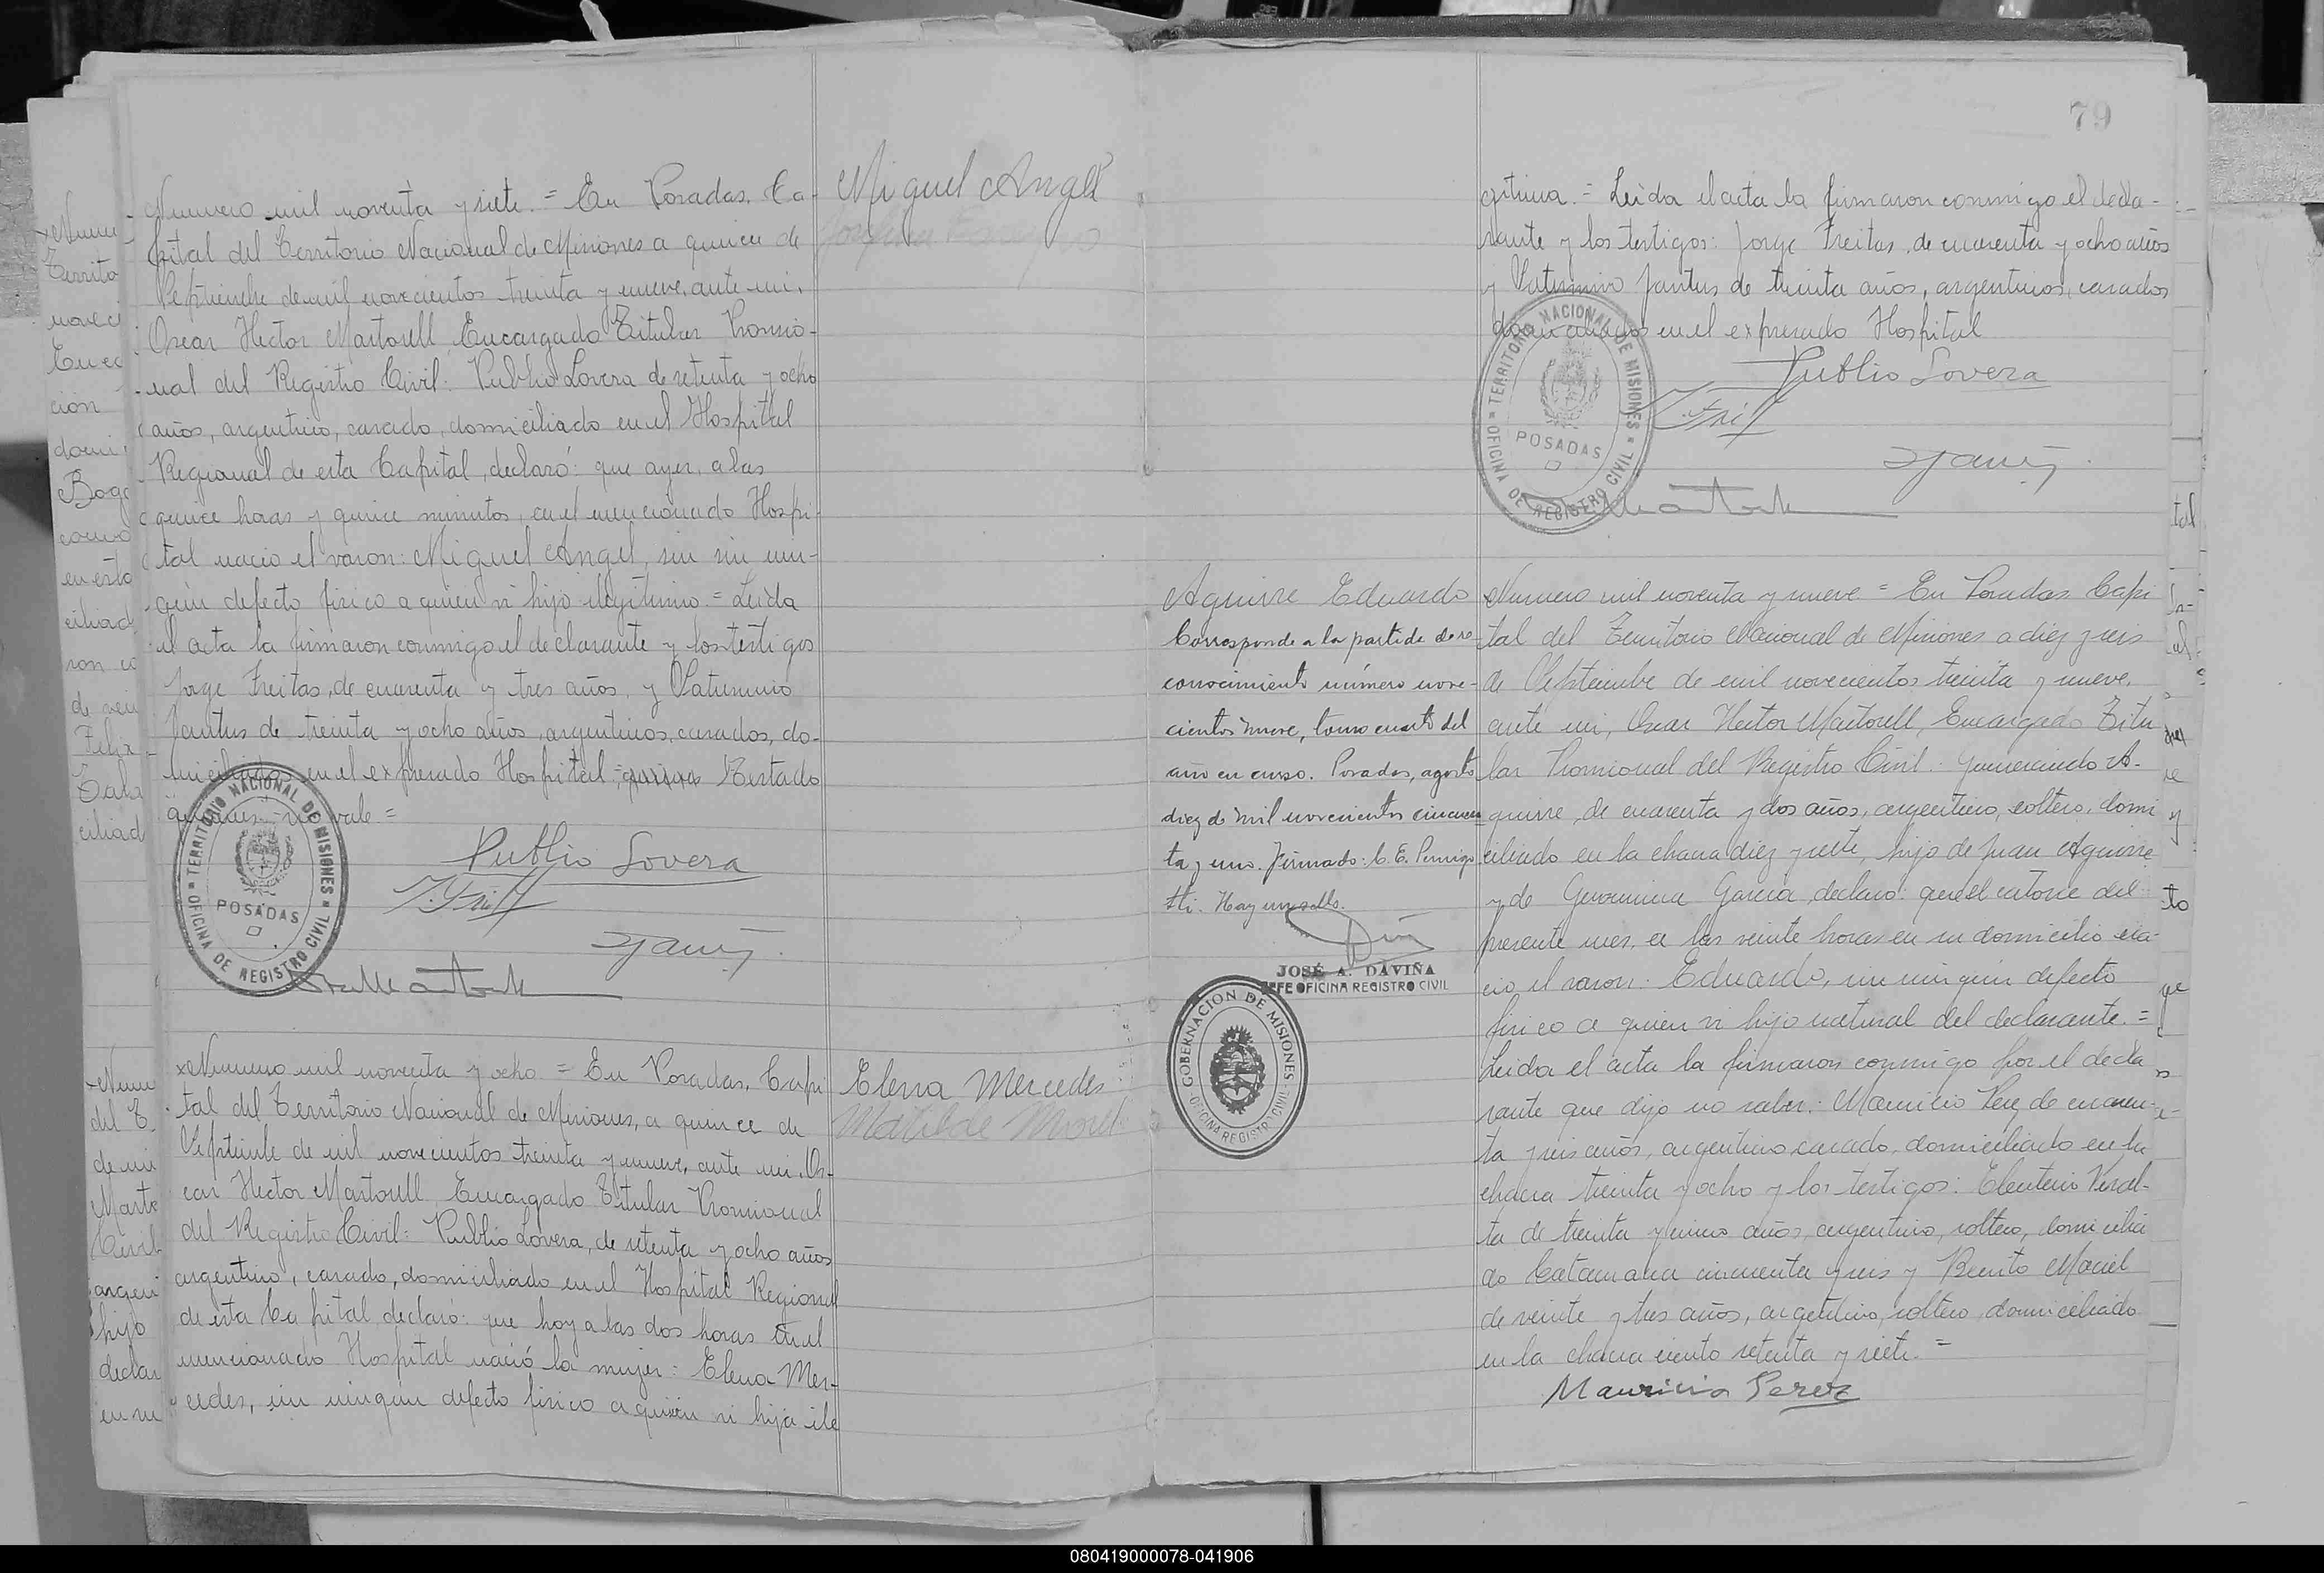 Numero mil noventa y siete. = En Posadas, Ca-
pital del Territorio Nacional de Misiones a quince de
Septiembre de mil novecientos treinta y nueve, ante mi,
Oscar Hector Martorell Encargado Titular Provisio-
nal del Registro Civil: Publio Lovera de setenta y ocho
años, argentino, casado, domiciliado en el Hospital
Regional de esta Capital, declaró: que ayer, a las
quince horas y quince minutos, en el mencionado Hospi-
tal nacio el varon: Miguel Angel, sin nin
gún defecto fisico a quien vi hijo ilegitimo. = Leida
el acta la firmaron conmigo el declarante y los testigos
Jorge Freitas, de cuarenta y tres años, y Saturnino
Jantus de treinta y ocho años, argentinos, casados, do-
miciliados en el expresado Hospital = Testado
no vale =
Publio Lovera
TERRITORIO NACIONAL DE MISIONES
POSADAS
OFICINA DE REGISTRO CIVIL
Miguel Angel
xNumero mil noventa y ocho = En Posadas, Capi
tal del Territorio Nacional de Misiones, a quince de
Septiembre de mil novecientos treinta y nueve, ante mi, Os-
car Hector Martorell Encargado Titular Provisional
del Registro Civil: Publio Lovera, de setenta y ocho años
argentino, casado, domiciliado en el Hospital Regional
de esta Capital declaró: que hoy a las dos horas en el
mencionado Hospital nació la mujer: Elena Mer-
cedes, sin ningún defecto fisico a quien vi hija ile
Elena Mercedes
Matilde Morel
79
gitima. = Leida el acta la firmaron conmigo el decla-
rante y los testigos: Jorge Freitas, de cuarenta y ocho años
y Saturnino Jantus de treinta años, argentinos, casados
domiciliados en el expresado Hospital
Publio Lovera
TERRITORIO NACIONAL DE MISIONES
POSADAS
OFICINA DE REGISTRO CIVIL
Aguirre Eduardo
Corresponde a la partida de re-
conocimiento número nove-
cientos nueve, tomo cuarto del
año en curso. Posadas, agosto
diez de mil novecientos cincuen
ta y uno. Firmado: C. E.
Hay un sello.
JOSÉ A. DAVIÑA
JEFE OFICINA REGISTRO CIVIL
GOBERNACION DE MISIONES
OFICINA REGISTRO CIVIL
xNumero mil noventa y nueve = En Posadas, Capi
tal del Territorio Nacional de Misiones a diez y seis
de Septiembre de mil novecientos treinta y nueve,
ante mi, Oscar Hector Martorell, Encargado Titu
lar Provisional del Registro Civil: Gumercindo A-
guirre, de cuarenta y dos años, argentino, soltero, domi
ciliado en la chacra diez y siete, hijo de Juan Aguirre
y de Geronima Garcia, declaró: que el catorce del
presente mes, a las veinte horas en su domicilio na-
cio el varon: Eduardo, sin ningún defecto
fisico a quien vi hijo natural del declarante. =
Leida el acta la firmaron conmigo por el decla
rante que dijo no saber: Mauricio Perez de cuaren-
ta y seis años, argentino, casado, domiciliado en la
chacra treinta y ocho y los testigos: Eleuterio Peral-
ta de treinta y cinco años, argentino, soltero, domicilia
do Catamarca cincuenta y seis y Benito Maciel
de veinte y tres años, argentino, soltero, domiciliado
en la chacra ciento setenta y siete. =
Mauricio Perez
080419000078-041906